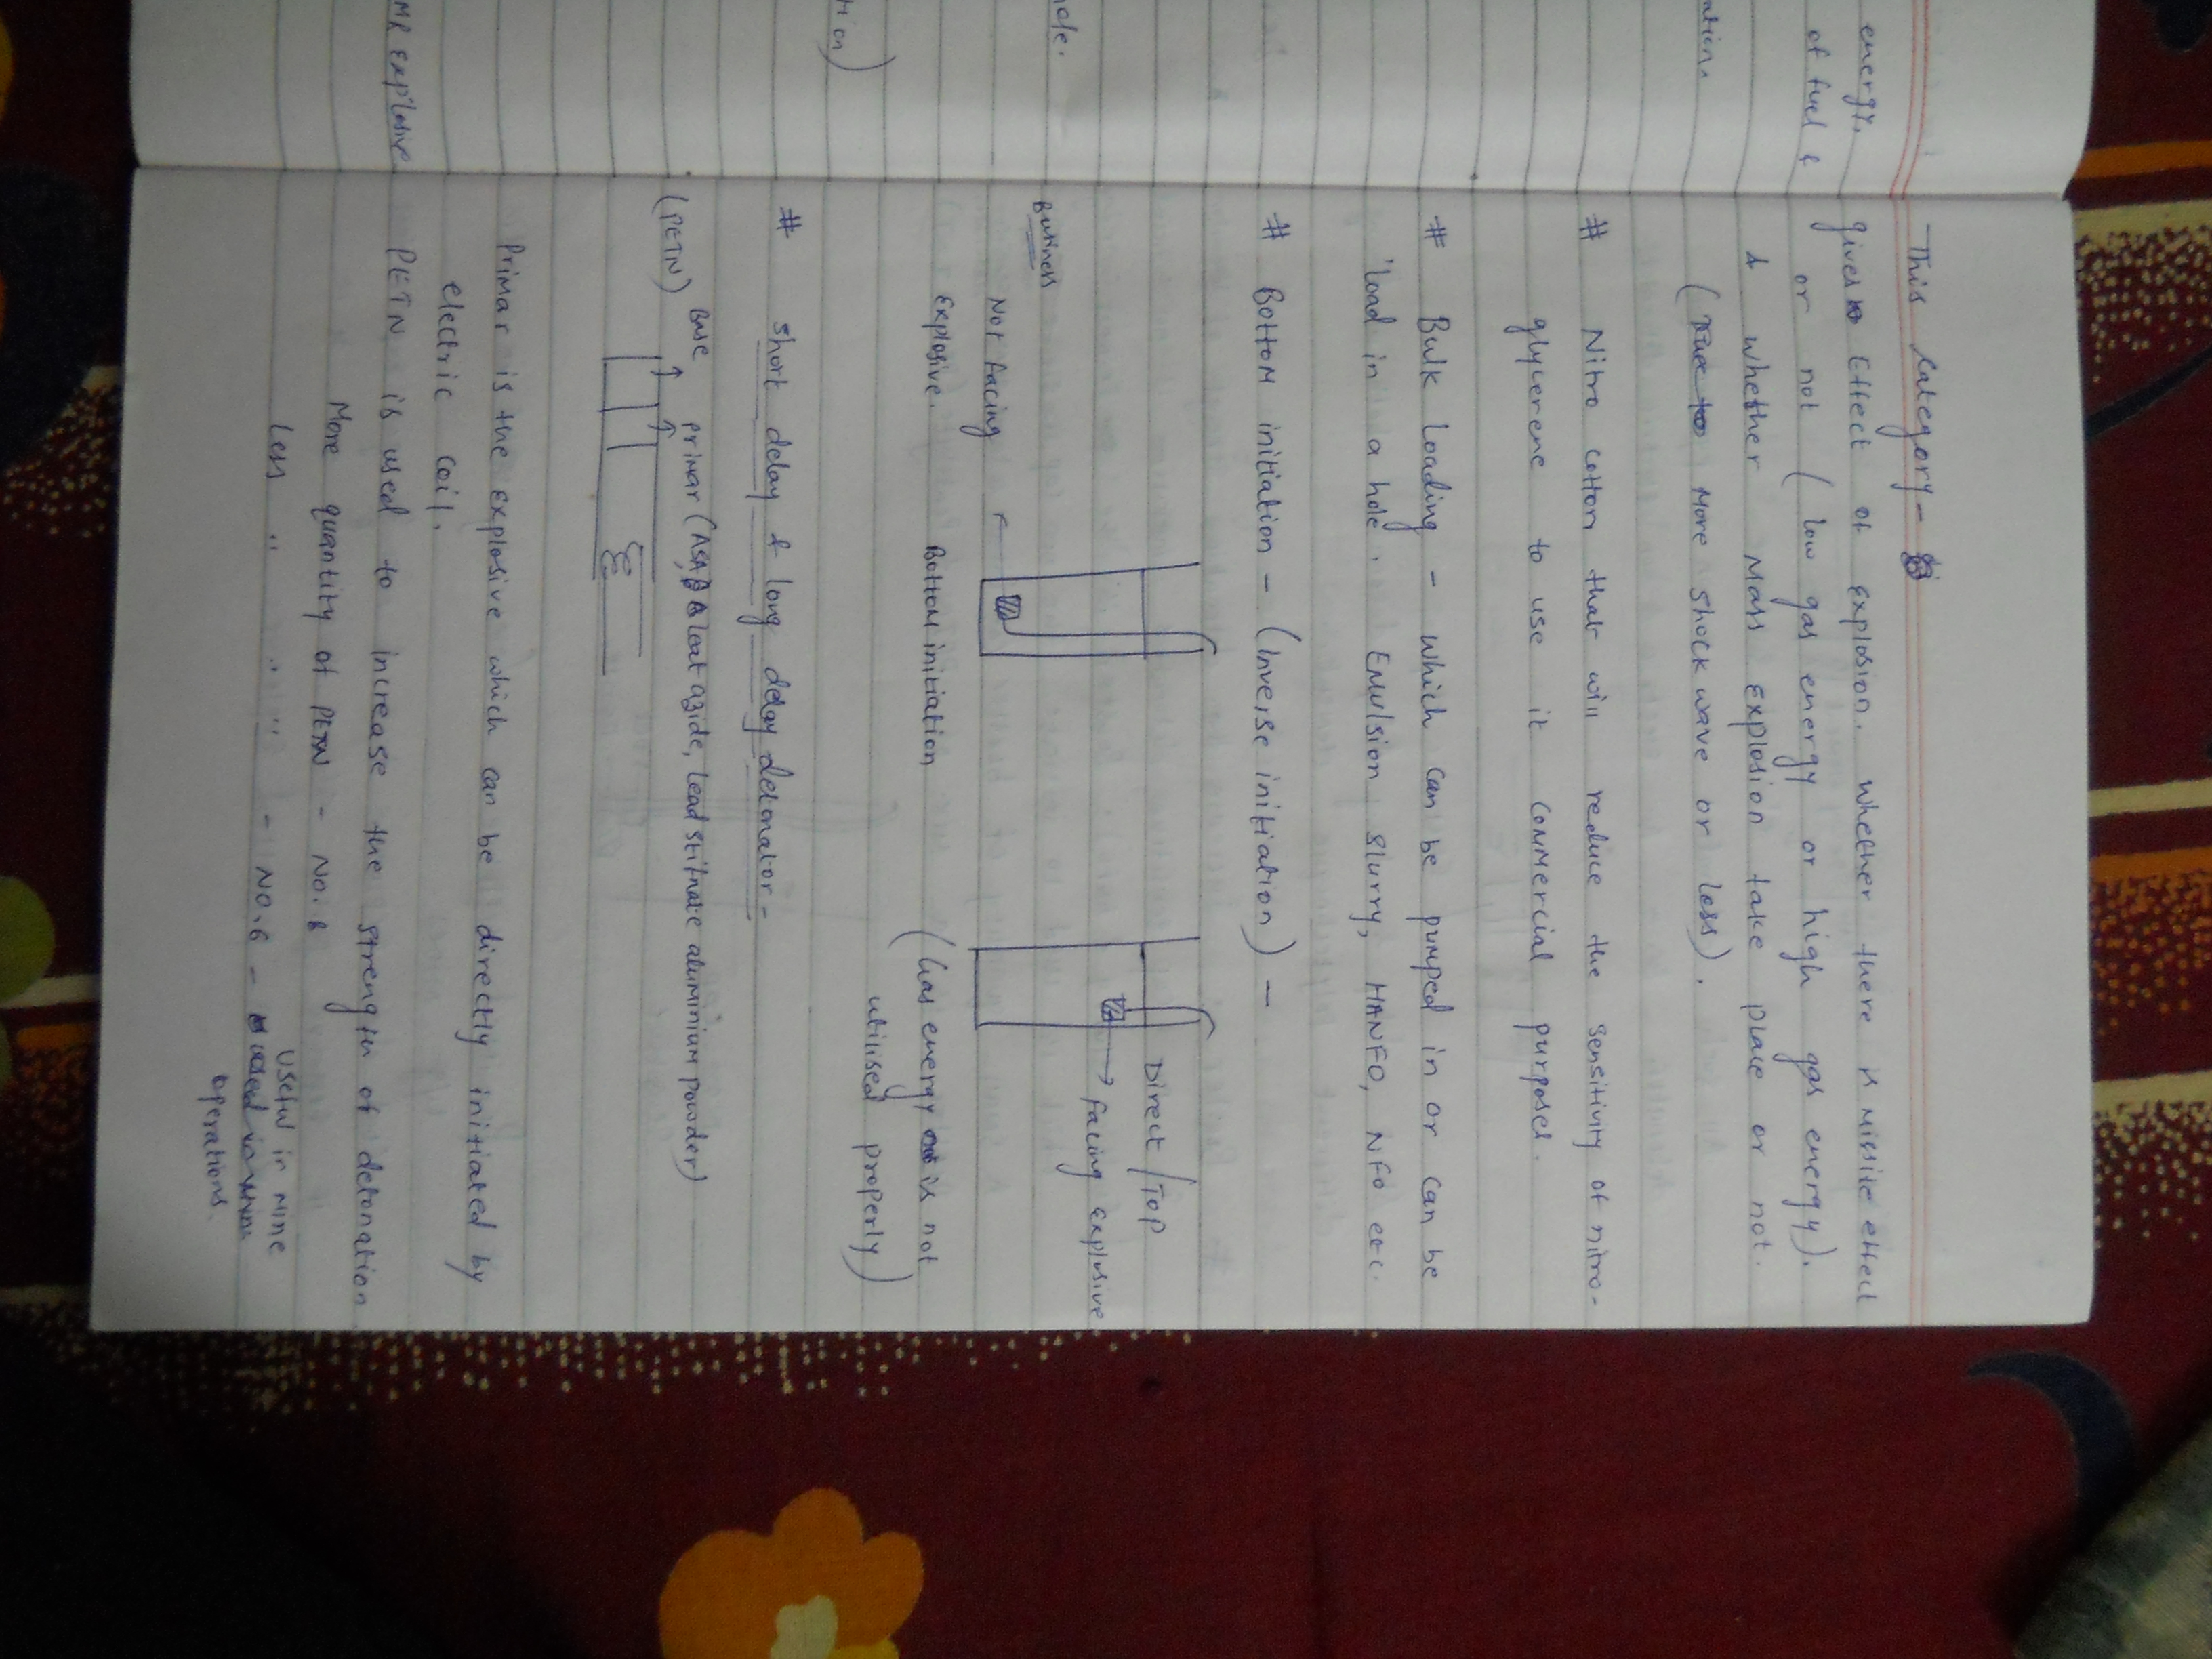 energy.
of fuel &
ation.
ole.
tion)
MR Explosive
This Category -
gives Effect of explosion. whether there is missile effect
or not (low gas energy or high gas energy).
& whether Mass Explosion take place or not.
(True to More shock wave or less).
# Nitro cotton that will reduce the sensitivity of nitro-
glycerene to use it commercial purposes.
# Bulk Loading - which can be pumped in or can be
load in a hole. Emulsion slurry, HANFO, NFO etc.
# Bottom initiation - (Inverse initiation) -
Direct/Top
Facing explosive
Not facing
Explosive.
Bottom initiation
(Gas energy is not
utilised properly)
# short delay & long delay detonator -
Base primar (ASA, Leat azide, Lead stifnate aluminium powder)
(PETN)
Primar is the explosive which can be directly initiated by
electric coil.
PETN is used to increase the strength of detonation
More quantity of PETN - No. 8
Less " " " - No. 6 - Useful in mine
operations.